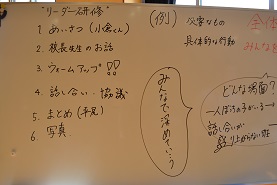 "リーダー研修"
1. あいさつ(小倉くん)
2. 校長先生のお話
3. ウォームアップ!!
4. 話し合い・協議
5. まとめ
6. 写真
(例)
災害なもの
具体的な行動
みんなで深めていう
全体
みんなを
どんな場面?
一人ぼっちの子がいる
話し合いが
盛り上がらない班